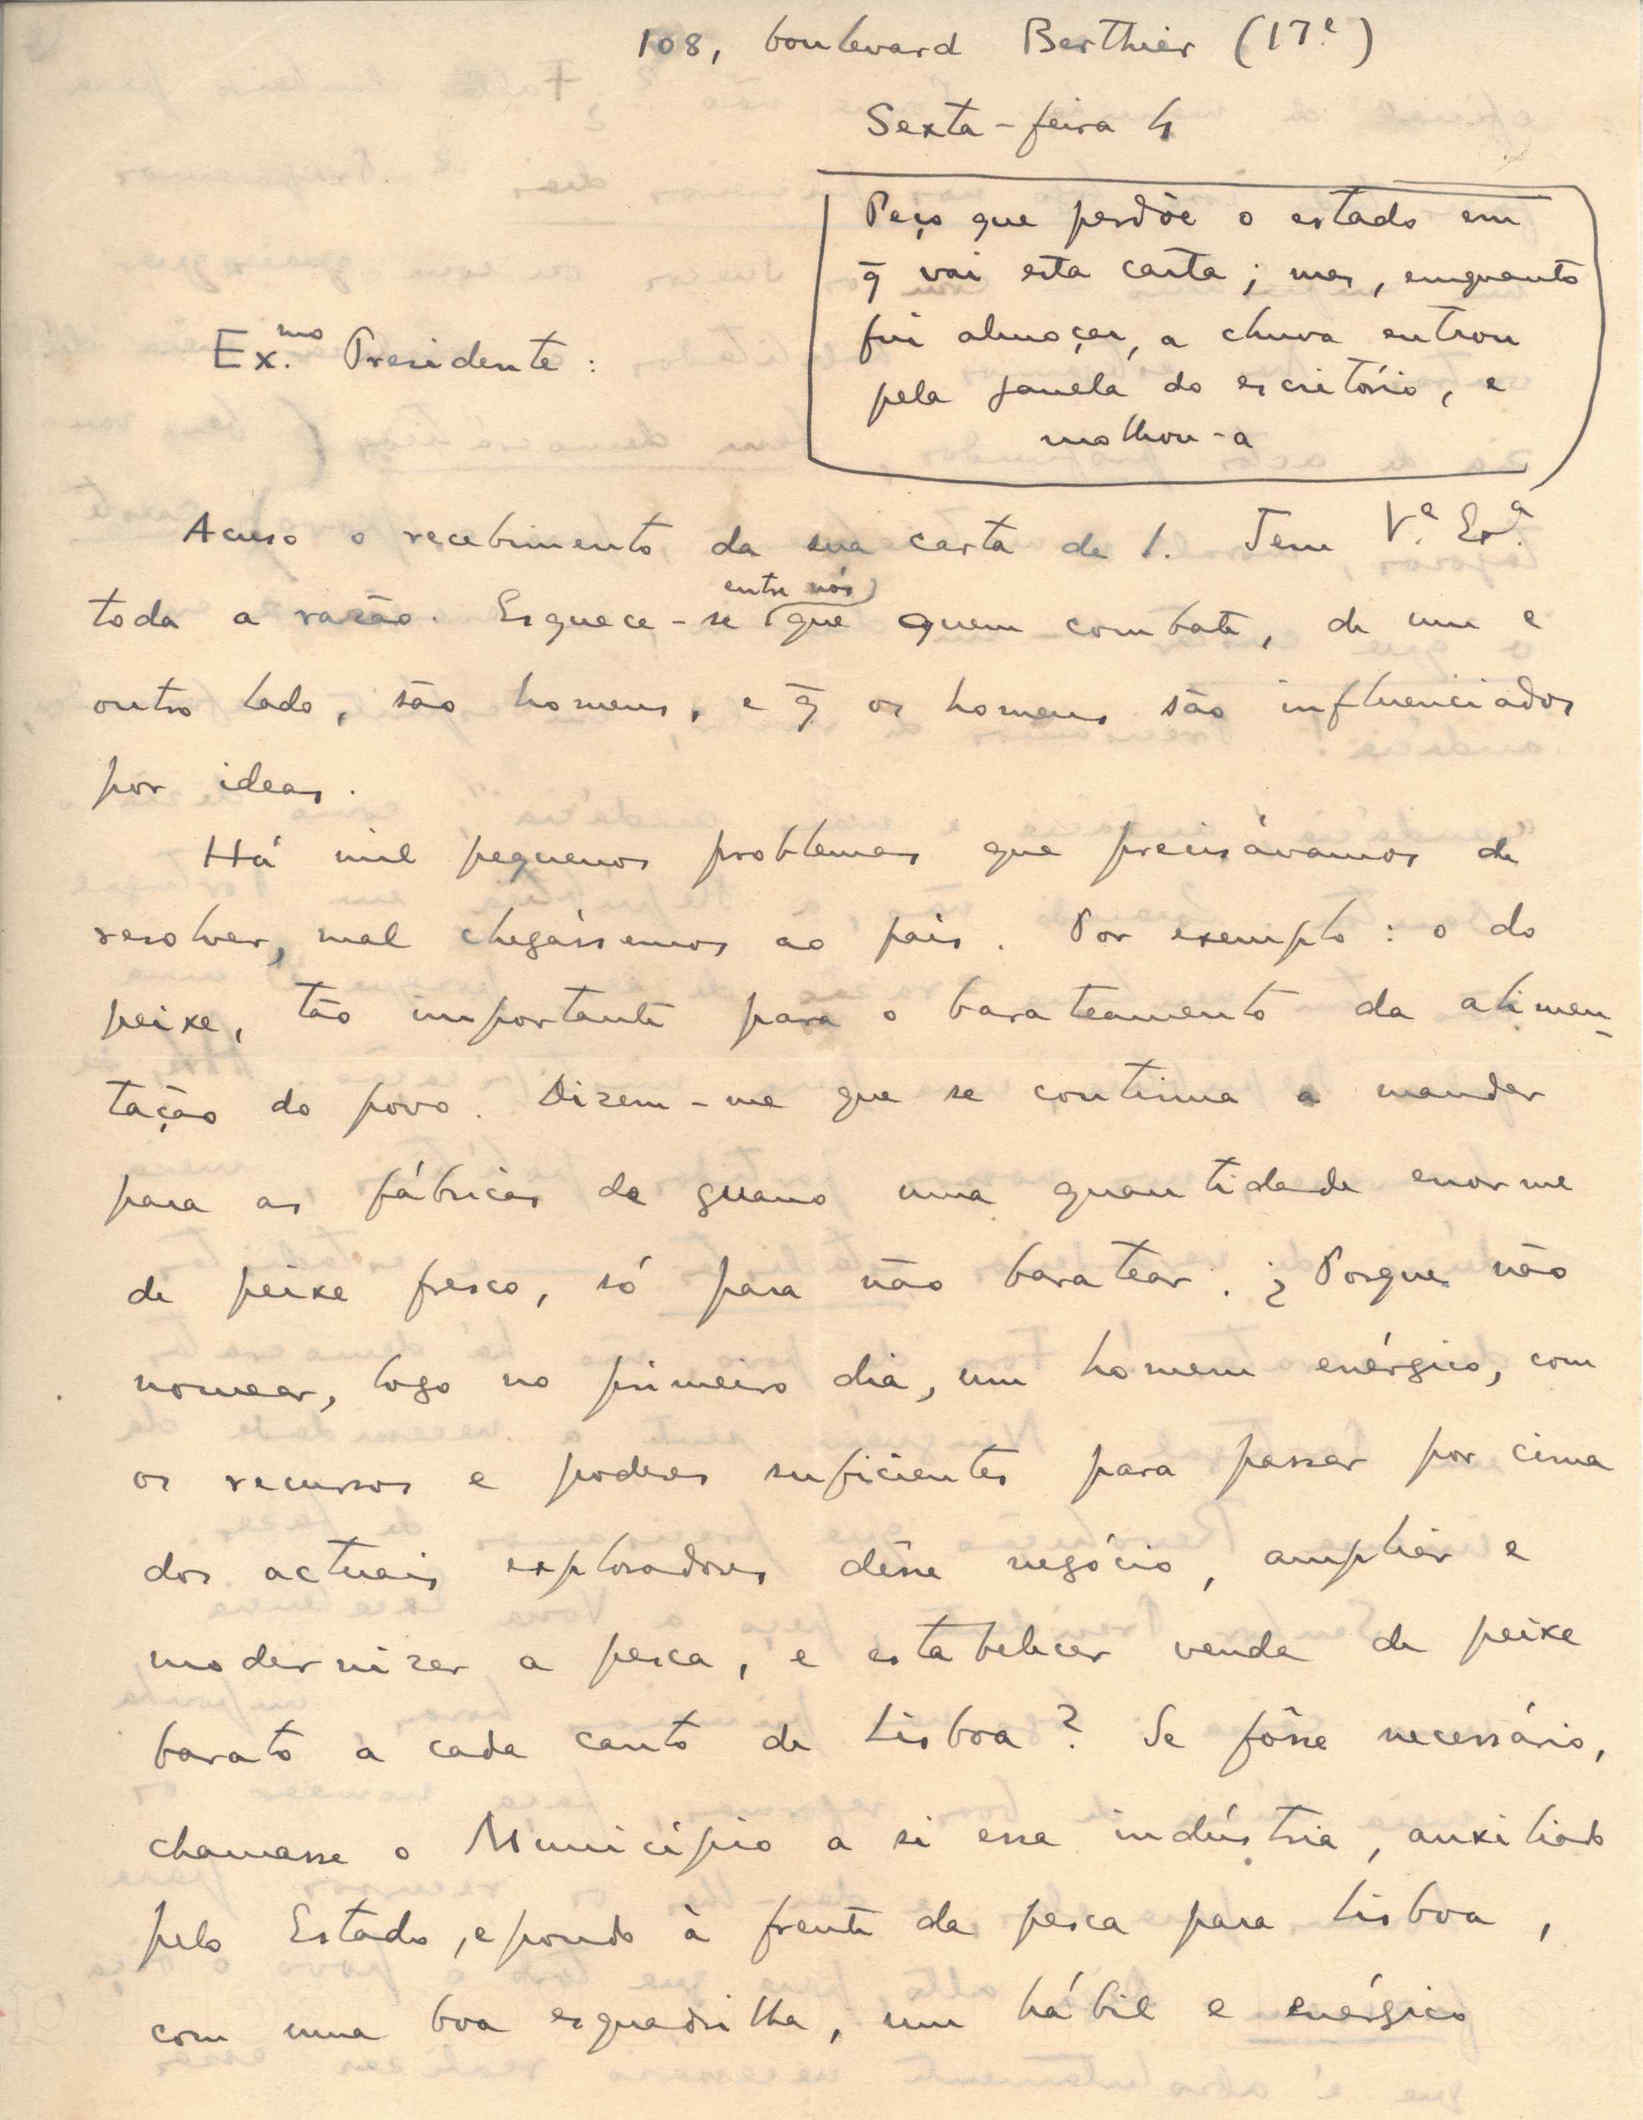 108, boulevard Berthier (17.e)
Sexta-feira 4
Peço que perdõe o estado em
q̄ vai esta carta; mas, emquanto
fui almoçar, a chuva entrou
pela janela do escritório, e
molhou-a
Ex.mo Presidente:
Acuso o recebimento da sua carta de 1. Tem V.ª Ex.ª
toda a razão. Esquece-se (entre nós) que quem combate, de um e
outro lado, são homens, e q̄ os homens são influenciados
por ideas.
Há mil pequenos problemas que precisávamos de
resolver, mal chegássemos ao país. Por exemplo: o do
peixe, tão importante para o barateamento da alimen-
tação do povo. Dizem-me que se continua a mandar
para as fábricas de guano uma quantidade enorme
de peixe fresco, só para não baratear. ¿Porque não
nomear, logo no primeiro dia, um homem enérgico, com
os recursos e poderes suficientes para passar por cima
dos actuais exploradores dêsse negócio, ampliar e
modernizar a pesca, e estabelecer venda de peixe
barato a cada canto de Lisboa? Se fôsse necessário,
chamasse o Município a si essa indústria, auxiliado
pelo Estado, e pondo à frente da pesca para Lisboa,
com uma boa esquadrilha, um hábil e enérgico